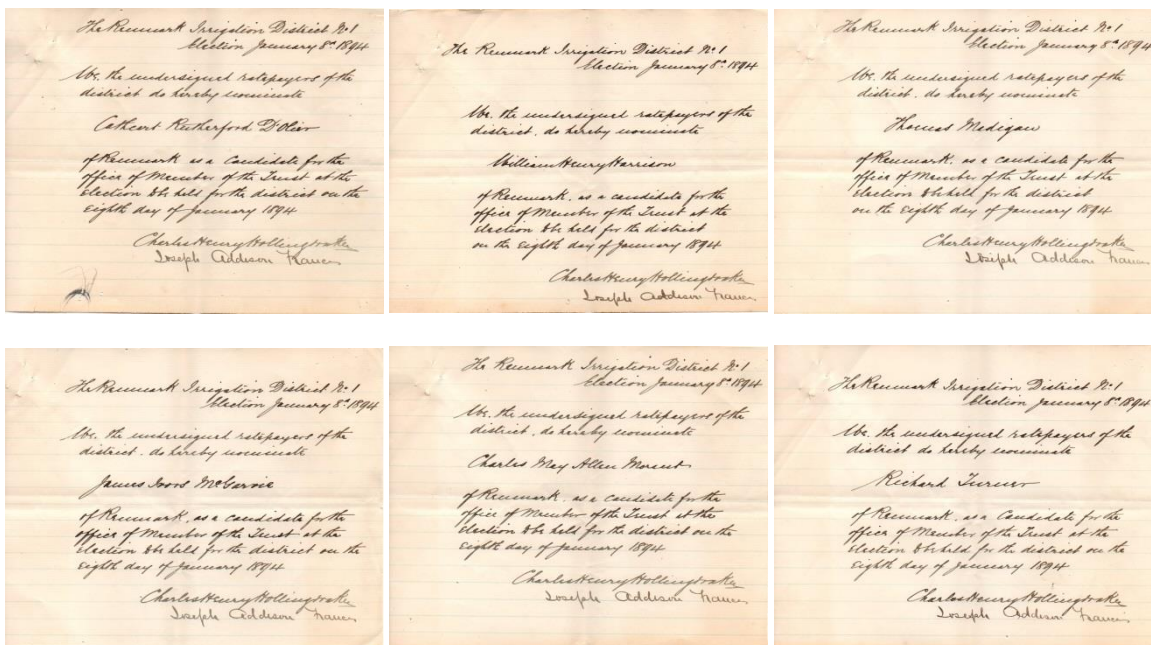 The Renmark Irrigation District No 1
Election January 8th 1894
We, the undersigned ratepayers of the
district do hereby nominate
Cathcart Rutherford D'Olier
of Renmark as a candidate for the
office of Member of the Trust at the
Election to be held for the district on the
Eighth day of January 1894
Charles Henry Hollingdrake
Joseph Addison Francis
The Renmark Irrigation District No 1
Election January 8th 1894
We, the undersigned ratepayers of the
district, do hereby nominate
William Henry Harrison
of Renmark, as a candidate for the
office of Member of the Trust at the
Election to be held for the district
on the Eighth day of January 1894
Charles Henry Hollingdrake
Joseph Addison Francis
The Renmark Irrigation District No 1
Election January 8th 1894
We, the undersigned ratepayers of the
district, do hereby nominate
Thomas Madigan
of Renmark, as a candidate for the
office of Member of the Trust at the
Election to be held for the district
on the Eighth day of January 1894
Charles Henry Hollingdrake
Joseph Addison Francis
The Renmark Irrigation District No 1
Election January 8th 1894
We, the undersigned ratepayers of the
district, do hereby nominate
James
of Renmark, as a candidate for the
office of Member of the Trust at the
Election to be held for the district on the
Eighth day of January 1894
Charles Henry Hollingdrake
Joseph Addison Francis
The Renmark Irrigation District No 1
Election January 8th 1894
We, the undersigned ratepayers of the
district, do hereby nominate
Charles May Allen Morant
of Renmark, as a candidate for the
office of Member of the Trust at the
Election to be held for the district on the
Eighth day of January 1894
Charles Henry Hollingdrake
Joseph Addison Francis
The Renmark Irrigation District No 1
Election January 8th 1894
We, the undersigned ratepayers of the
district do hereby nominate
Richard Turner
of Renmark, as a Candidate for the
office of Member of the Trust at the
Election to be held for the district on the
Eighth day of January 1894
Charles Henry Hollingdrake
Joseph Addison Francis